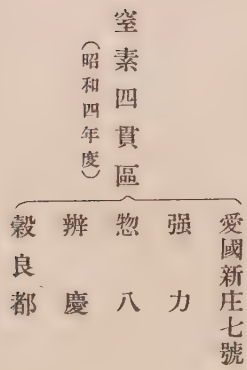 窒素四貫區
（昭和四年度）
愛國新庄七號
强力
惣八
辨慶
穀良都